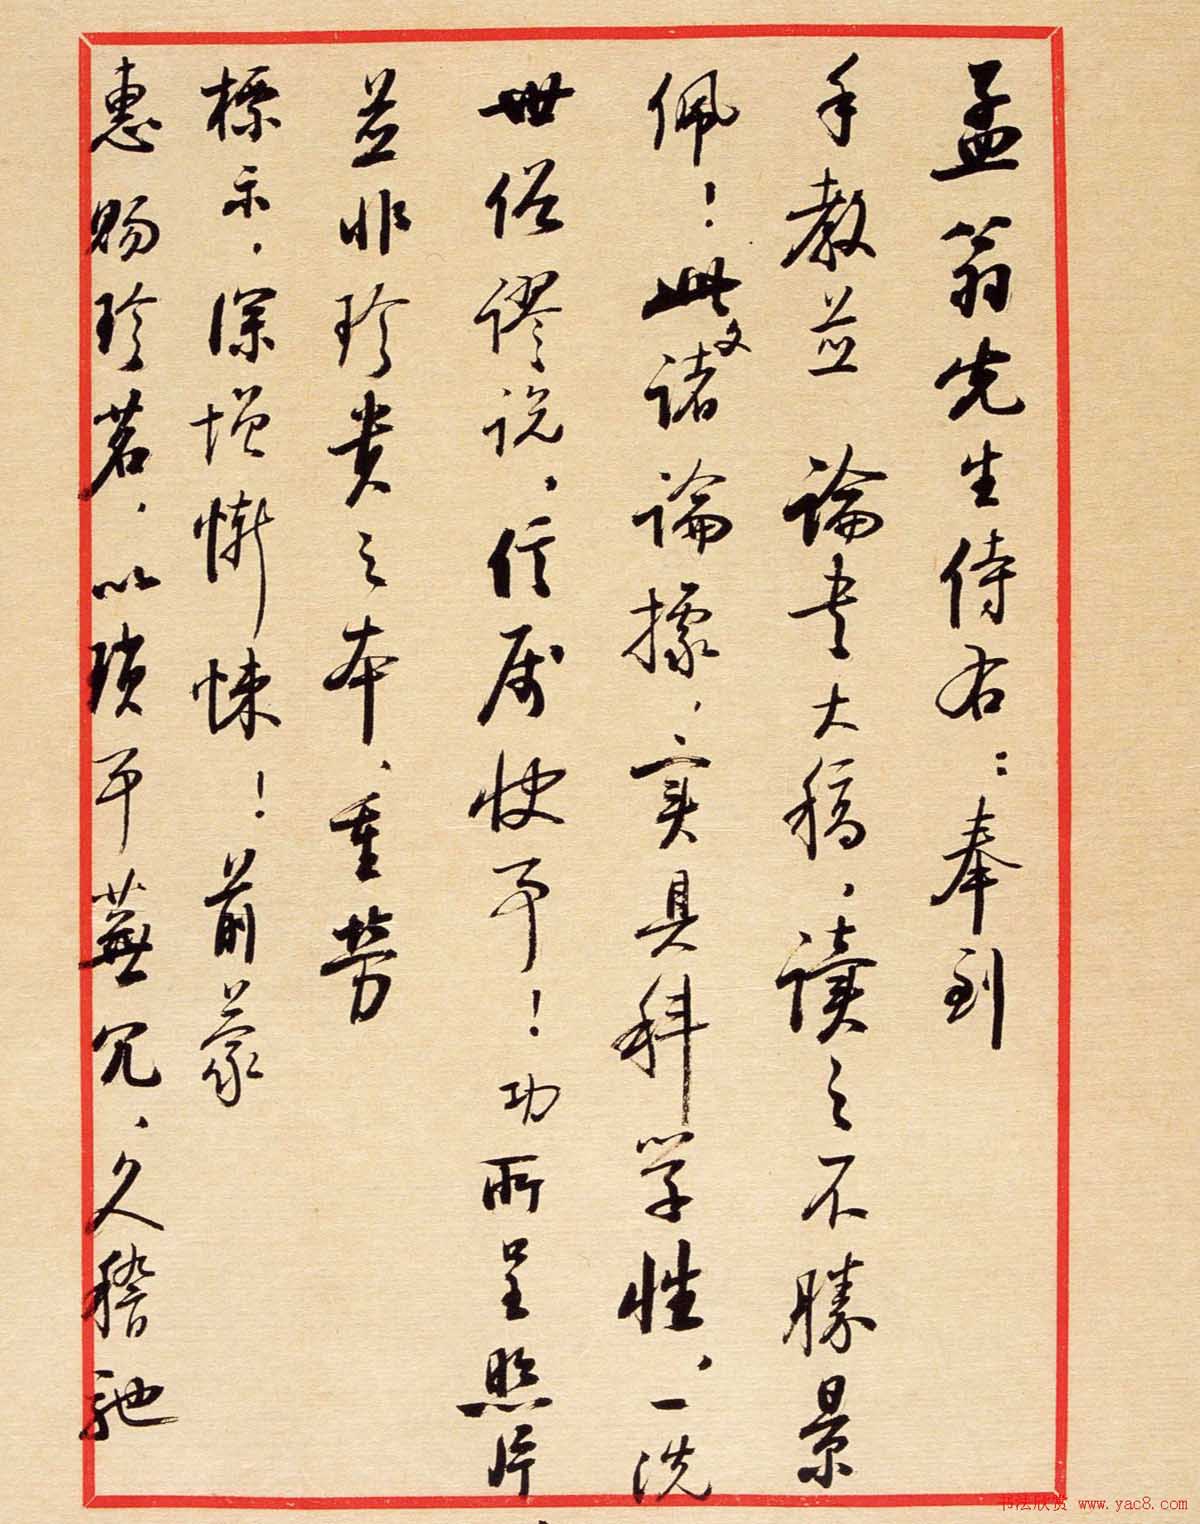 孟翁先生侍右：奉到
手教並論书大稿，读之不勝景
佩！此文诸論據，实具科学性，一洗
世俗谬说，信属快事！功所呈照片
並非珍贵之本，重劳
標示，深增慚悚！前蒙
惠赐珍茗，以琐事蕪冗，久稽驰
书法欣赏 www.yac8.com